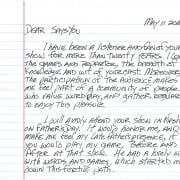 MAY 11 20
DEAR SAYS YOU
I HAVE BEEN A LISTENER AND FAN OF YOUR
SHOW FOR MORE THAN TWENTY YEARS. I
THE GAMES AND REPARTEE, THE BREADTH OF
KNOWLEDGE AND WIT OF YOUR CAST. MOREOVER
THE PARTICIPATION OF THE AUDIENCE MAKES
ME FEEL PART OF A COMMUNITY OF PEOPLE
WHO VALUE WORDPLAY AND GATHER REGULARLY
TO ENJOY THIS PLEASURE.
I WILL AWAIT YOUR SHOW IN
ON FATHERS DAY. IT WOULD HONOR ME, AND
MAKE ME FEEL MY LATE FATHERS PRESENCE, IF
YOU WOULD PLAY MY GAME, BEFORE AND
AFTER AT THAT SHOW. HE HAD A LOVELY
WITH WORDS AND GAMES, WHICH STARTED ME
DOWN THIS PATH.